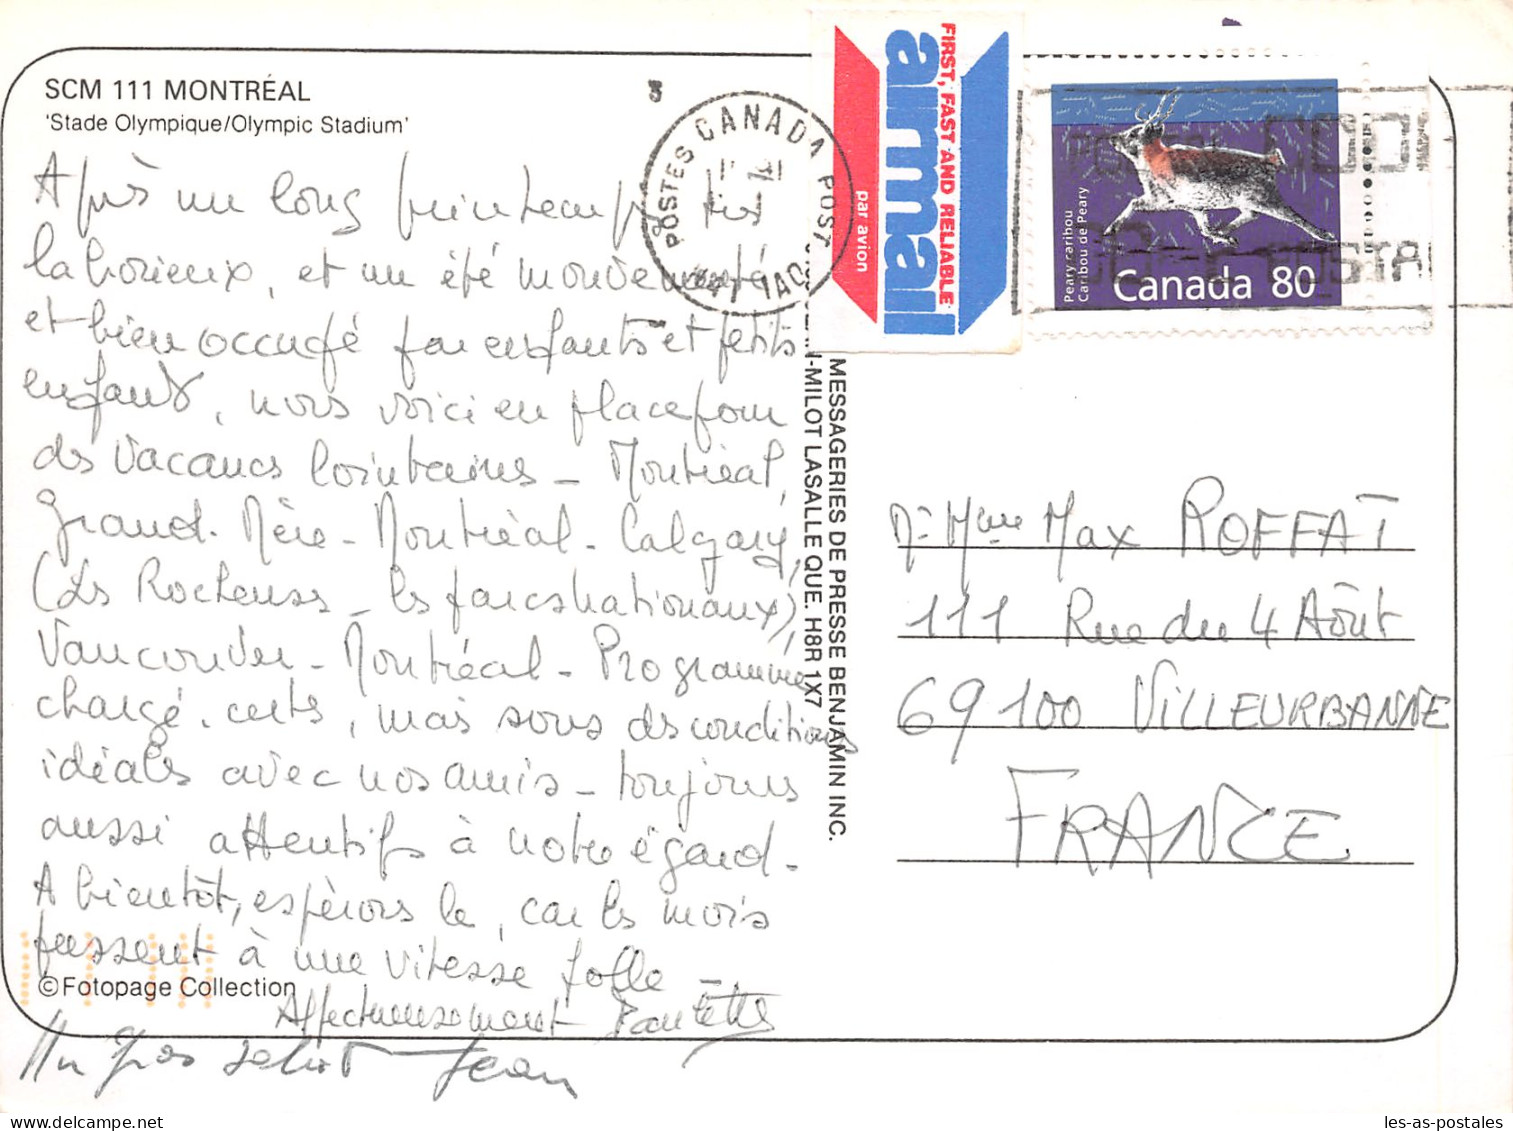 SCM 111 MONTRÉAL
'Stade Olympique/Olympic Stadium'
Après un long printemps très
laborieux, et un été mouvementé
et bien occupé par enfants et petits
enfants, nous voici en place pour
des vacances lointaines - Montréal,
Grand-Mère - Montréal - Calgary,
(Les Rocheuses - les parcs nationaux),
Vancouver - Montréal - Programme
chargé, certes, mais sous des conditions
idéales avec nos amis - toujours
aussi attentifs à notre égard -
A bientôt, espérons le, car les mois
passent à une vitesse folle -
©Fotopage Collection
Affectueusement Paulette
Un gros salut Jean
POSTES CANADA POST
FIRST, FAST AND RELIABLE
airmail
par avion
Peary caribou
Caribou de Peary
Canada 80
MESSAGERIES DE PRESSE BENJAMIN INC.
-MILOT LASALLE QUE. H8R 1X7
Mr Mme Max ROFFAT
111 Rue du 4 Août
69100 VILLEURBANNE
FRANCE
les-as-postales